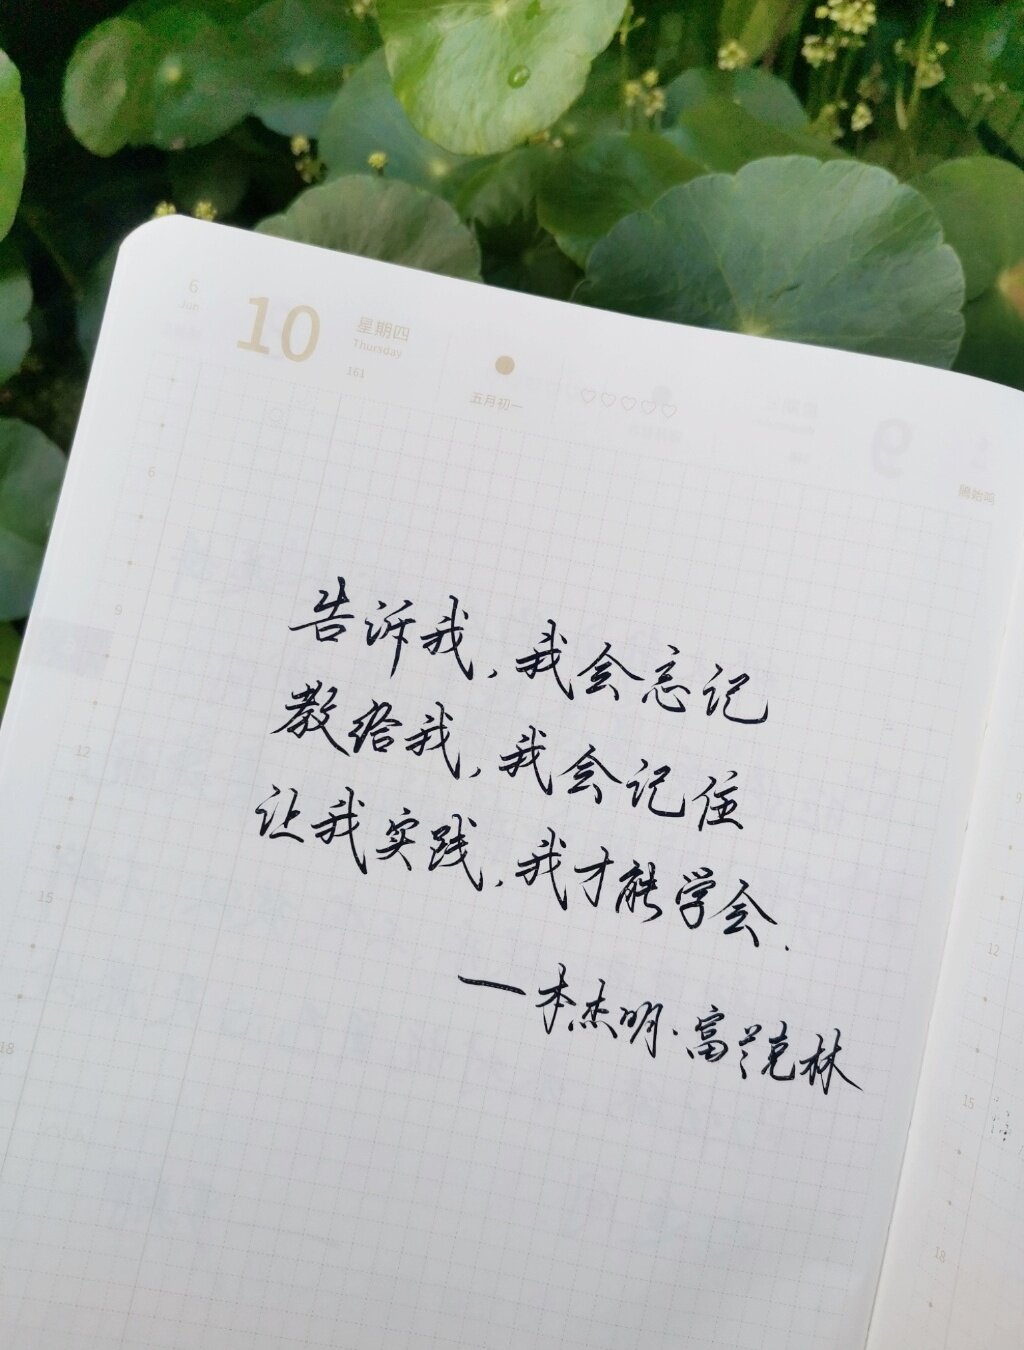 6
Jun
10
星期四
Thursday
161
五月初一
告诉我，我会忘记
教给我，我会记住
让我实践，我才能学会.
一本杰明·富兰克林
6
9
12
15
18
9
12
15
18